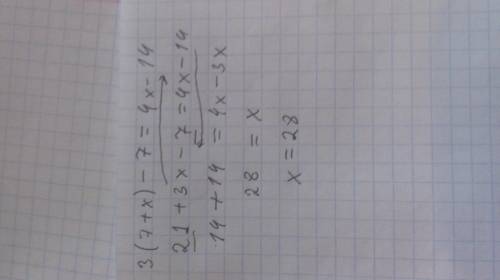 3(7+x)-7=4x-14
21+3x-7=4x-14
14+14=4x-3x
28=x
x=28